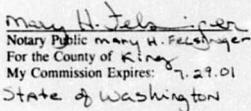 Mary H. Felsinger
Notary Public Mary H. Felsinger
For the County of King
My Commission Expires: 7.29.01
State of Washington